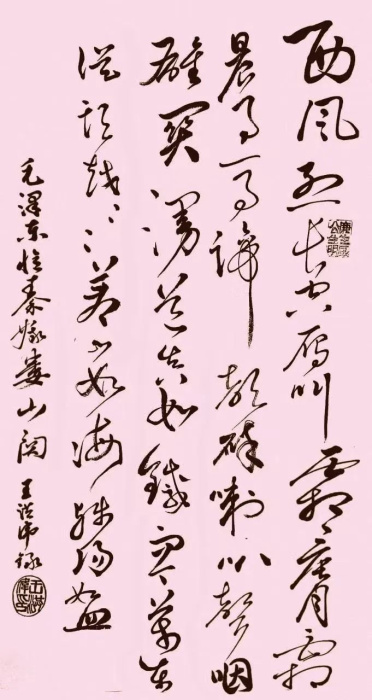 西風烈長空雁叫霜晨月霜
晨月馬蹄聲碎喇叭聲咽
雄關漫道真如鐵而今邁步
從頭越〻〻〻蒼山如海殘陽如血
毛澤東憶秦娥婁山關